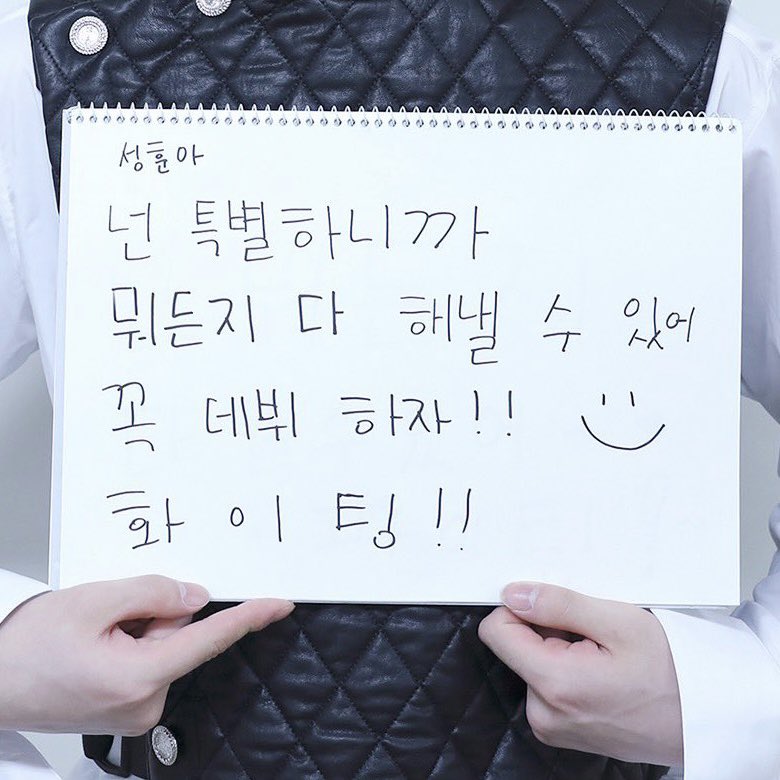 성훈아
넌 특별하니까
뭐든지 다 해낼 수 있어
꼭 데뷔 하자!!
화 이 팅!!